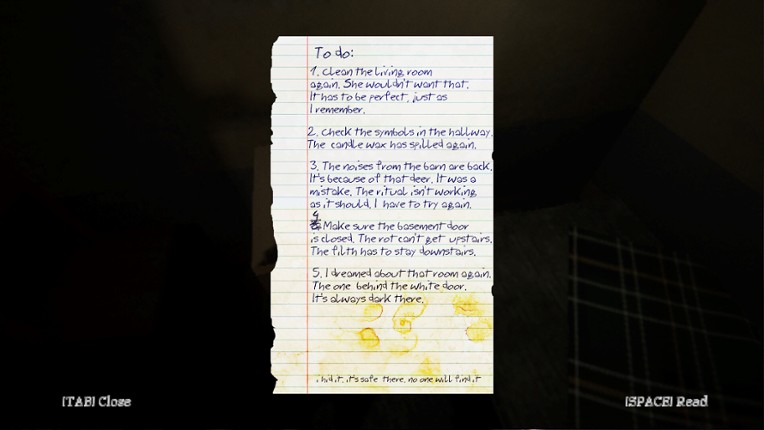 To do:
1. Clean the living room
again. She wouldn't want that.
It has to be perfect, just as
I remember.
2. Check the symbols in the hallway.
The candle wax has spilled again.
3. The noises from the barn are back.
It's because of that deer. It was a
mistake. The ritual isn't working
as it should. I have to try again.
4
Make sure the basement door
is closed. The rot can't get upstairs.
The filth has to stay downstairs.
5. I dreamed about that room again.
The one behind the white door.
It's always dark there.
i hid it. it's safe there. no one will find it
[TAB] Close
[SPACE] Read